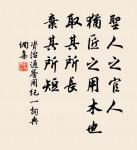 聖人之官人
猶匠之用木也
取其所長
棄其所短
資治通鑒周紀一詞典
網集